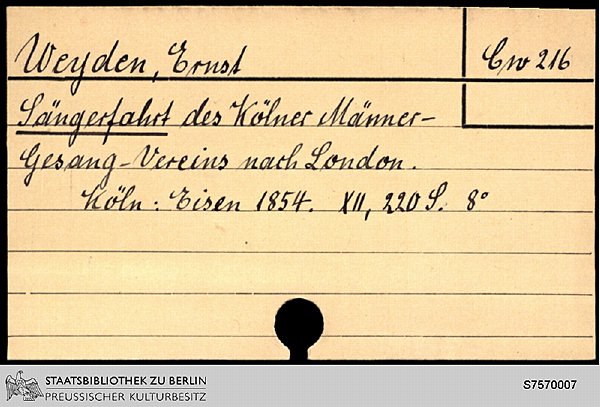 Weyden, Ernst
Cw 216
Sängerfahrt des Kölner Männer-
Gesang-Vereins nach London.
Köln: Eisen 1854. XII, 220 S. 8°
STAATSBIBLIOTHEK ZU BERLIN
PREUSSISCHER KULTURBESITZ
S7570007